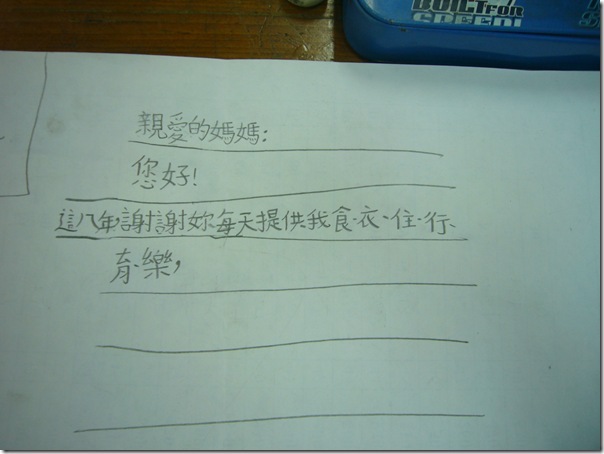 BUILT FOR
GREEN!
親愛的媽媽：
您好！
這八年，謝謝妳每天提供我食、衣、住、行、
育、樂，